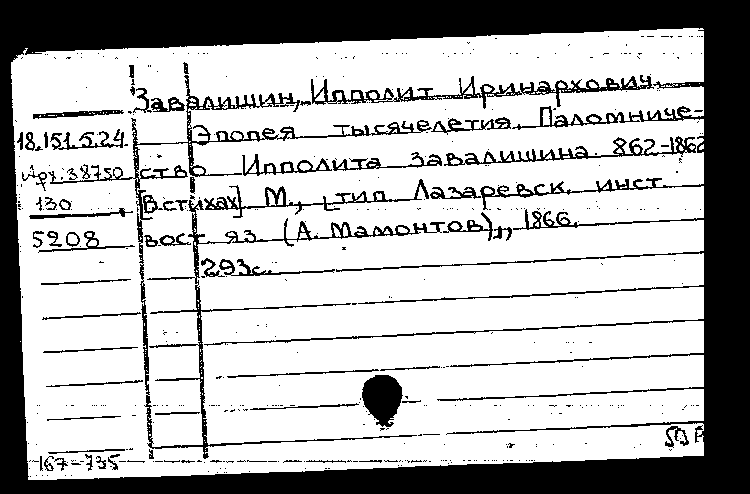 Завалишин, Ипполит Иринархович.
18.151.5.24 Эпопея тысячелетия. Паломниче-
Арх. 38750 ство Ипполита Завалишина. 862-1862
130 [В стихах] М., тип. Лазаревск. инст.
5208 вост. яз. (А. Мамонтов), 1866.
293с.
167-735